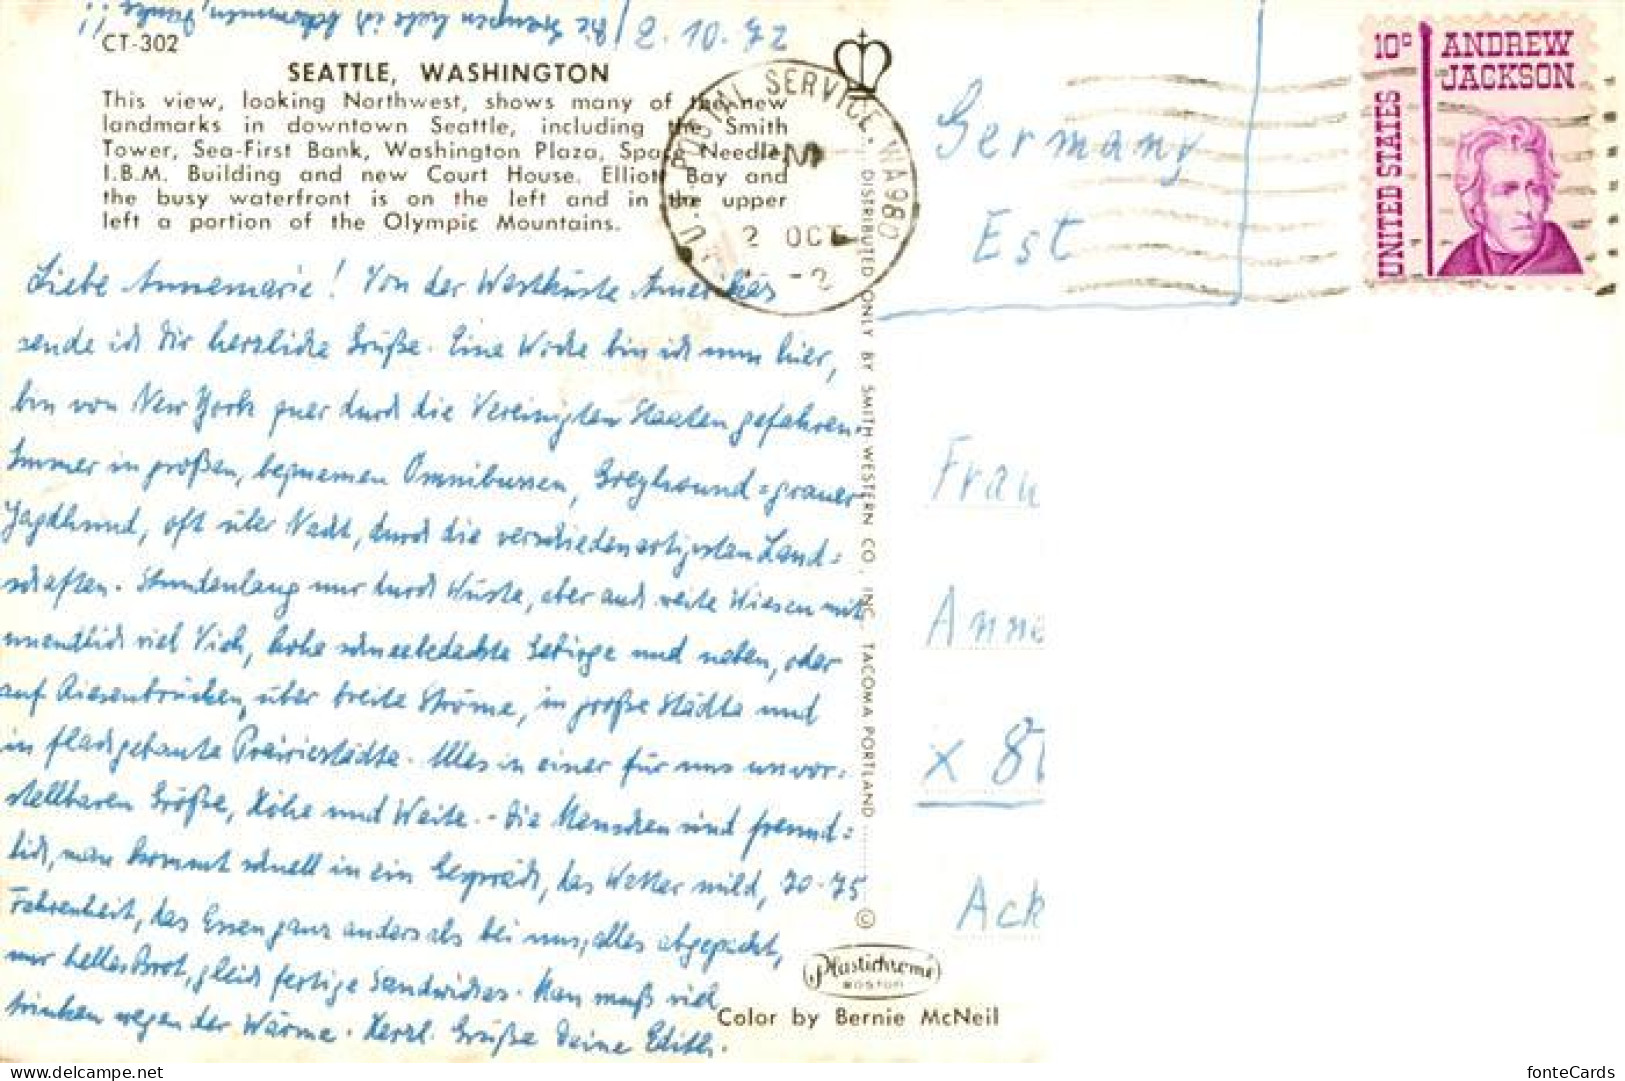 Die Strümpfe habe ich bekommen, Danke!!
2.10.72
CT-302
SEATTLE, WASHINGTON
This view, looking Northwest, shows many of the new
landmarks in downtown Seattle, including the Smith
Tower, Sea-First Bank, Washington Plaza, Space Needle,
I.B.M. Building and new Court House. Elliott Bay and
the busy waterfront is on the left and in the upper
left a portion of the Olympic Mountains.
Liebe Annemarie! Von der Westküste Amerikas
sende ich Dir herzliche Grüße. Eine Woche bin ich nun hier,
bin von New York quer durch die Vereinigten Staaten gefahren.
Immer in großen, bequemen Omnibussen, Greyhound = grauer
Jagdhund, oft über Nacht, durch die verschiedenartigsten Land=
schaften. Stundenlang nur durch Wüste, aber auch weite Wiesen mit
unendlich viel Vieh, hohe schneebedeckte Gebirge und neben, oder
auf Riesenbrücken, über breite Ströme, in große Städte und
in flachgebaute Präiriestädte. Alles in einer für uns unvor=
stellbaren Größe, Höhe und Weite. - Die Menschen sind freund=
lich, man kommt schnell in ein Gespräch, das Wetter mild, 70-75
Fahrenheit, das Essen ganz anders als bei uns, alles abgepackt,
nur helles Brot, gleich fertige Sandwiches. Man muß viel
trinken wegen der Wärme. Herzl. Grüße Deine Edith.
U.S. POSTAL SERVICE, WA 980
PM
2 OCT
DISTRIBUTED ONLY BY SMITH WESTERN CO., INC., TACOMA PORTLAND
©
Plastichrome
BOSTON
Color by Bernie McNeil
Germany
Est
10c ANDREW
JACKSON
UNITED STATES
Frau
Anne
x 8
Ack
fonteCards